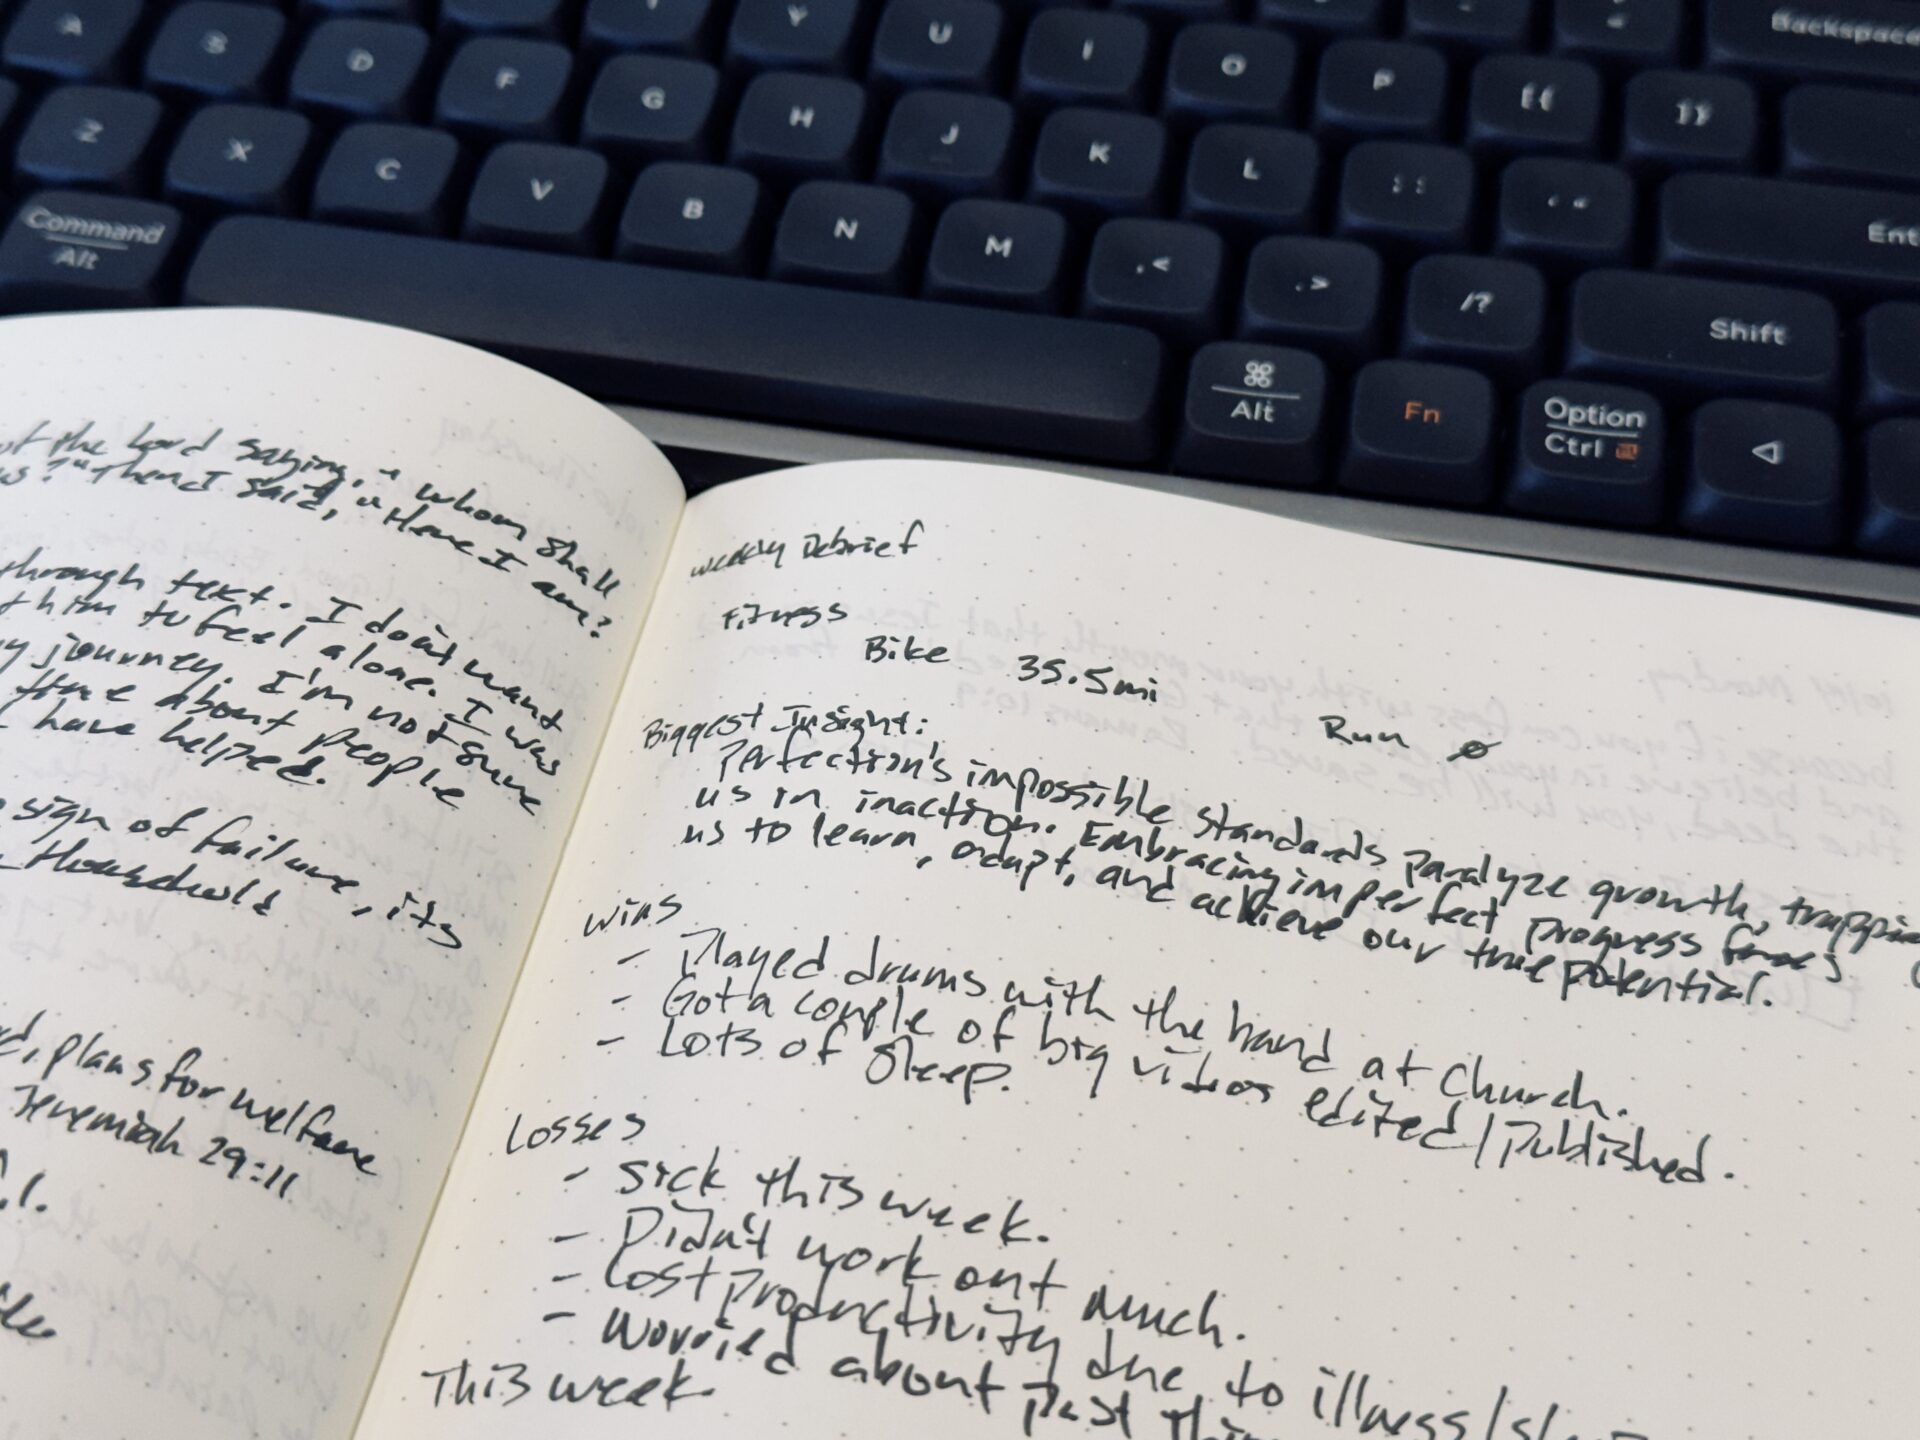 Y U I O P {[ }] Backspace
A S D F G H J K L : ; " " Ent
Z X C V B N M , < . > /? Shift
Command
Alt
⌘
Alt
Fn
Option
Ctrl
of the Lord saying, "whom shall
us?" Then I said, "Here I am?
through text. I don't want
him to feel alone. I was
my journey. I'm not sure
time about people
I have helped.
sign of failure, its
Household
plans for welfare
Jeremiah 29:11
Weekly Debrief
Fitness
Bike 35.5mi Run ∅
Biggest Insight:
Perfection's impossible standards paralyze growth, trapping
us in inaction. Embracing imperfect progress
us to learn, adapt, and achieve our true potential.
Wins
- Played drums with the band at Church.
- Got a couple of big videos edited/published.
- Lots of sleep.
Losses
- Sick this week.
- Didn't work out much.
- Lost productivity due to illness/sl
- Worried about past thin
This week